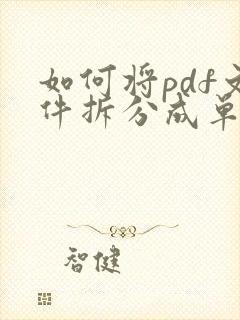 如何将pdf文
件拆分成单
智健